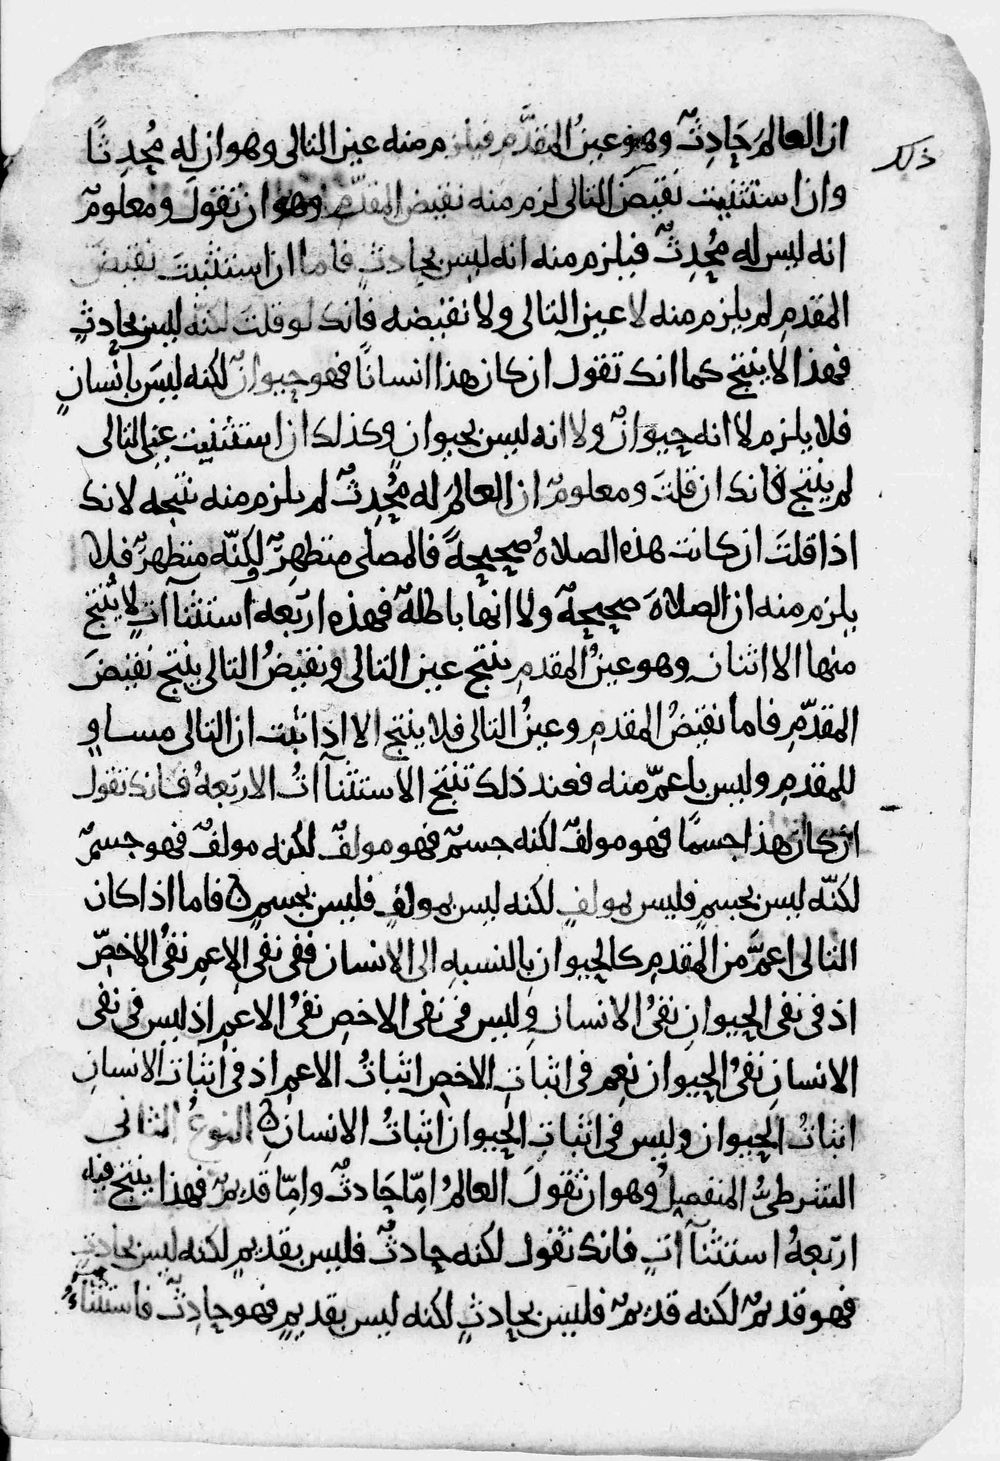 ذلك
ان العالمَ حَادِثٌ وهو عينُ المقدَّم فيلزم منه عين التالى وهو ان له مُحدِثًا
وان استثنيت نقيضَ التالى لزم منه نقيض المقدّم وهو ان تقولَ ومعلومٌ
انه ليس له مُحدِثٌ فيلزم منه انه ليس بحادثٍ فاما ان استثنيتَ نقيضَ
المقدمِ لم يلزم منه لا عين التالى ولا نقيضه فانك لو قلتَ لكنّه ليس بحادثٍ
فهذا لا ينتج كما انك تقول ان كان هذا انسانًا فهو حيوانٌ لكنه ليسَ بانسانٍ
فلا يلزم لا انه حيوانٌ ولا انه ليس بحيوانٍ وكذلك ان استثنيت عين التالى
لم ينتج فانك ان قلتَ ومعلومٌ ان العالمَ له مُحدِثٌ لم يلزم منه نتيجه لانك
اذا قلتَ ان كانت هذه الصلاهُ صحيحهً فالمصلى متطهِرٌ لكِنّه متطهرٌ فلا
يلزم منه ان الصلاهَ صحيحهٌ ولا انها باطلهٌ فهذه اربَعه استثنآاتٍ لا يُنتج
منها الا اثنان وهو عينُ المقدمِ ينتج عين التالى ونقيضُ التالى ينتج نقيضَ
المقدّمِ فاما نقيضُ المقدمِ وعينُ التالى فلا ينتج الا اذا ثبت ان التالى مساوٍ
للمقدمِ وليس باعمّ منه فعند ذلك تنتج الاستثنآاتُ الاربَعهُ فانك تقول
ان كان هذا جسمًا فهو مولفٌ لكنه جسمٌ فهو مولفٌ لكنه مولفٌ فهو جسمٌ
لكنّه ليس بجسمٍ فليس بمولفٍ لكنه ليس بمولفٍ فليس بجسمٍ ه فاما اذا كان
التالى اعمَّ من المقدمِ كالحيوان بالنسبهِ الى الانسان ففى نفى الاعمِ نفىُ الاخصّ
اذ فى نفى الحيوانِ نفىُ الانسان وليس فى نفى الاخصِ نفىُ الاعمِ اذ ليس فى نفى
الانسانِ نفىُ الحيوان نعم فى اثباتِ الاخصِ اثباتُ الاعمِ اذ فى اثبات الانسانِ
اثباتُ الحيوان وليس فى اثباتِ الحيوان اثباتُ الانسانِ ه النوعُ الثانى
الشرطىُّ المنفصلُ وهو ان تقولَ العالمُ امّا حَادثٌ وامّا قديمٌ فهذا ينتج فيه
اربَعهُ استثنآاتٍ فانك تقول لكنه حادثٌ فليس بقديمٍ لكنه ليس بحادثٍ
فهو قديمٌ لكنه قديمٌ فليس بحادثٍ لكنه ليس بقديمٍ فهو حادِثٌ فاستثناءُ